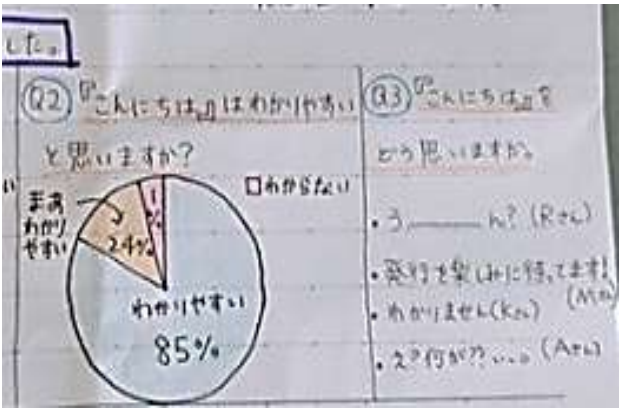 した。
Q2 『こんにちは』はわかりやすい
と思いますか?
まあ
わかり
やすい
24%
1
%
□わからない
わかりやすい
85%
Q3 『こんにちは』を
どう思いますか。
・う———ん?(Rさん)
・発行を楽しみに待ってます!
(Mさん)
・わかりません(Kさん)
・え?何が??...。(Aさん)